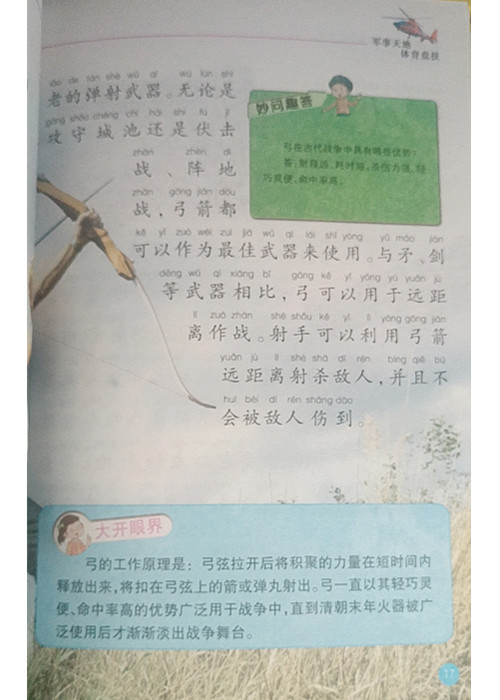 军事天地
体育竞技
lǎo de tán shè wǔ qì wú lùn shì
老的弹射武器。无论是
gōng shǒu chéng chí hái shì fú jī
攻守城池还是伏击
zhàn zhèn dì
战、阵地
zhàn gōng jiàn dōu
战，弓箭都
kě yǐ zuò wéi zuì jiā wǔ qì lái shǐ yòng yǔ máo jiàn
可以作为最佳武器来使用。与矛、剑
děng wǔ qì xiāng bǐ gōng kě yǐ yòng yú yuǎn jù
等武器相比，弓可以用于远距
lí zuò zhàn shè shǒu kě yǐ lì yòng gōng jiàn
离作战。射手可以利用弓箭
yuǎn jù lí shè shā dí rén bìng qiě bú
远距离射杀敌人，并且不
huì bèi dí rén shāng dào
会被敌人伤到。
妙问趣答
弓在古代战争中具有哪些优势？
答：射程远、耗时短、杀伤力强、轻
巧灵便、命中率高。
大开眼界
弓的工作原理是：弓弦拉开后将积聚的力量在短时间内
释放出来，将扣在弓弦上的箭或弹丸射出。弓一直以其轻巧灵
便、命中率高的优势广泛用于战争中，直到清朝末年火器被广
泛使用后才渐渐淡出战争舞台。
17